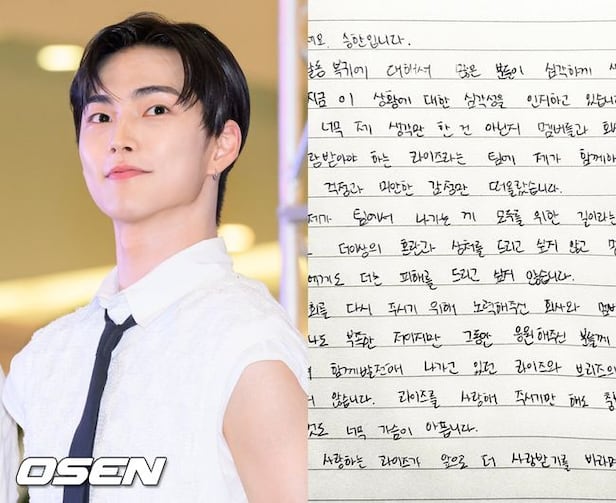 승한입니다.
활동 복귀에 대해서 많은 분들이 심각하게
지금 이 상황에 대한 심각성을 인지하고 있습니다
너무 제 생각만 한 건 아닌지 멤버들과 회사
랑받아야 하는 라이즈라는 팀에 제가 함께하
걱정과 미안한 감정만 떠올랐습니다.
제가 팀에서 나가는 게 모두를 위한 길이라는
더이상의 혼란과 상처를 드리고 싶지 않고
에게도 더는 피해를 드리고 싶지 않습니다.
회를 다시 주시기 위해 노력해주신 회사와 멤버
나도 부족한 저이지만 그동안 응원해주신 분들께
함께발전해 나가고 있던 라이즈와 브리즈의
않습니다. 라이즈를 사랑해 주시기만 해도
것도 너무 가슴이 아픕니다.
사랑하는 라이즈가 앞으로 더 사랑받기를 바라며
OSEN